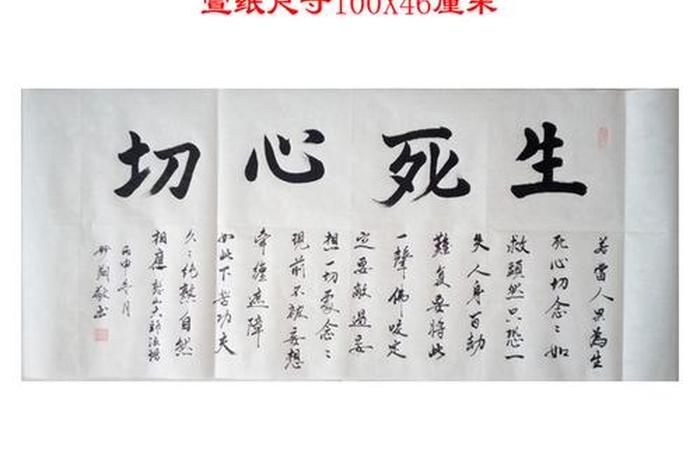 宣纸尺寸100X46厘米
生死心切
若當人果為生
死心切念々如
救頭然只恐一
失人身百劫
難复要將此
一聲佛咬定
定要敵過妄
想一切處念々
現前不被妄想
牽纏遮障
如此下苦功夫
久々純熟自然
相應 憨山大師法語
丙申 月